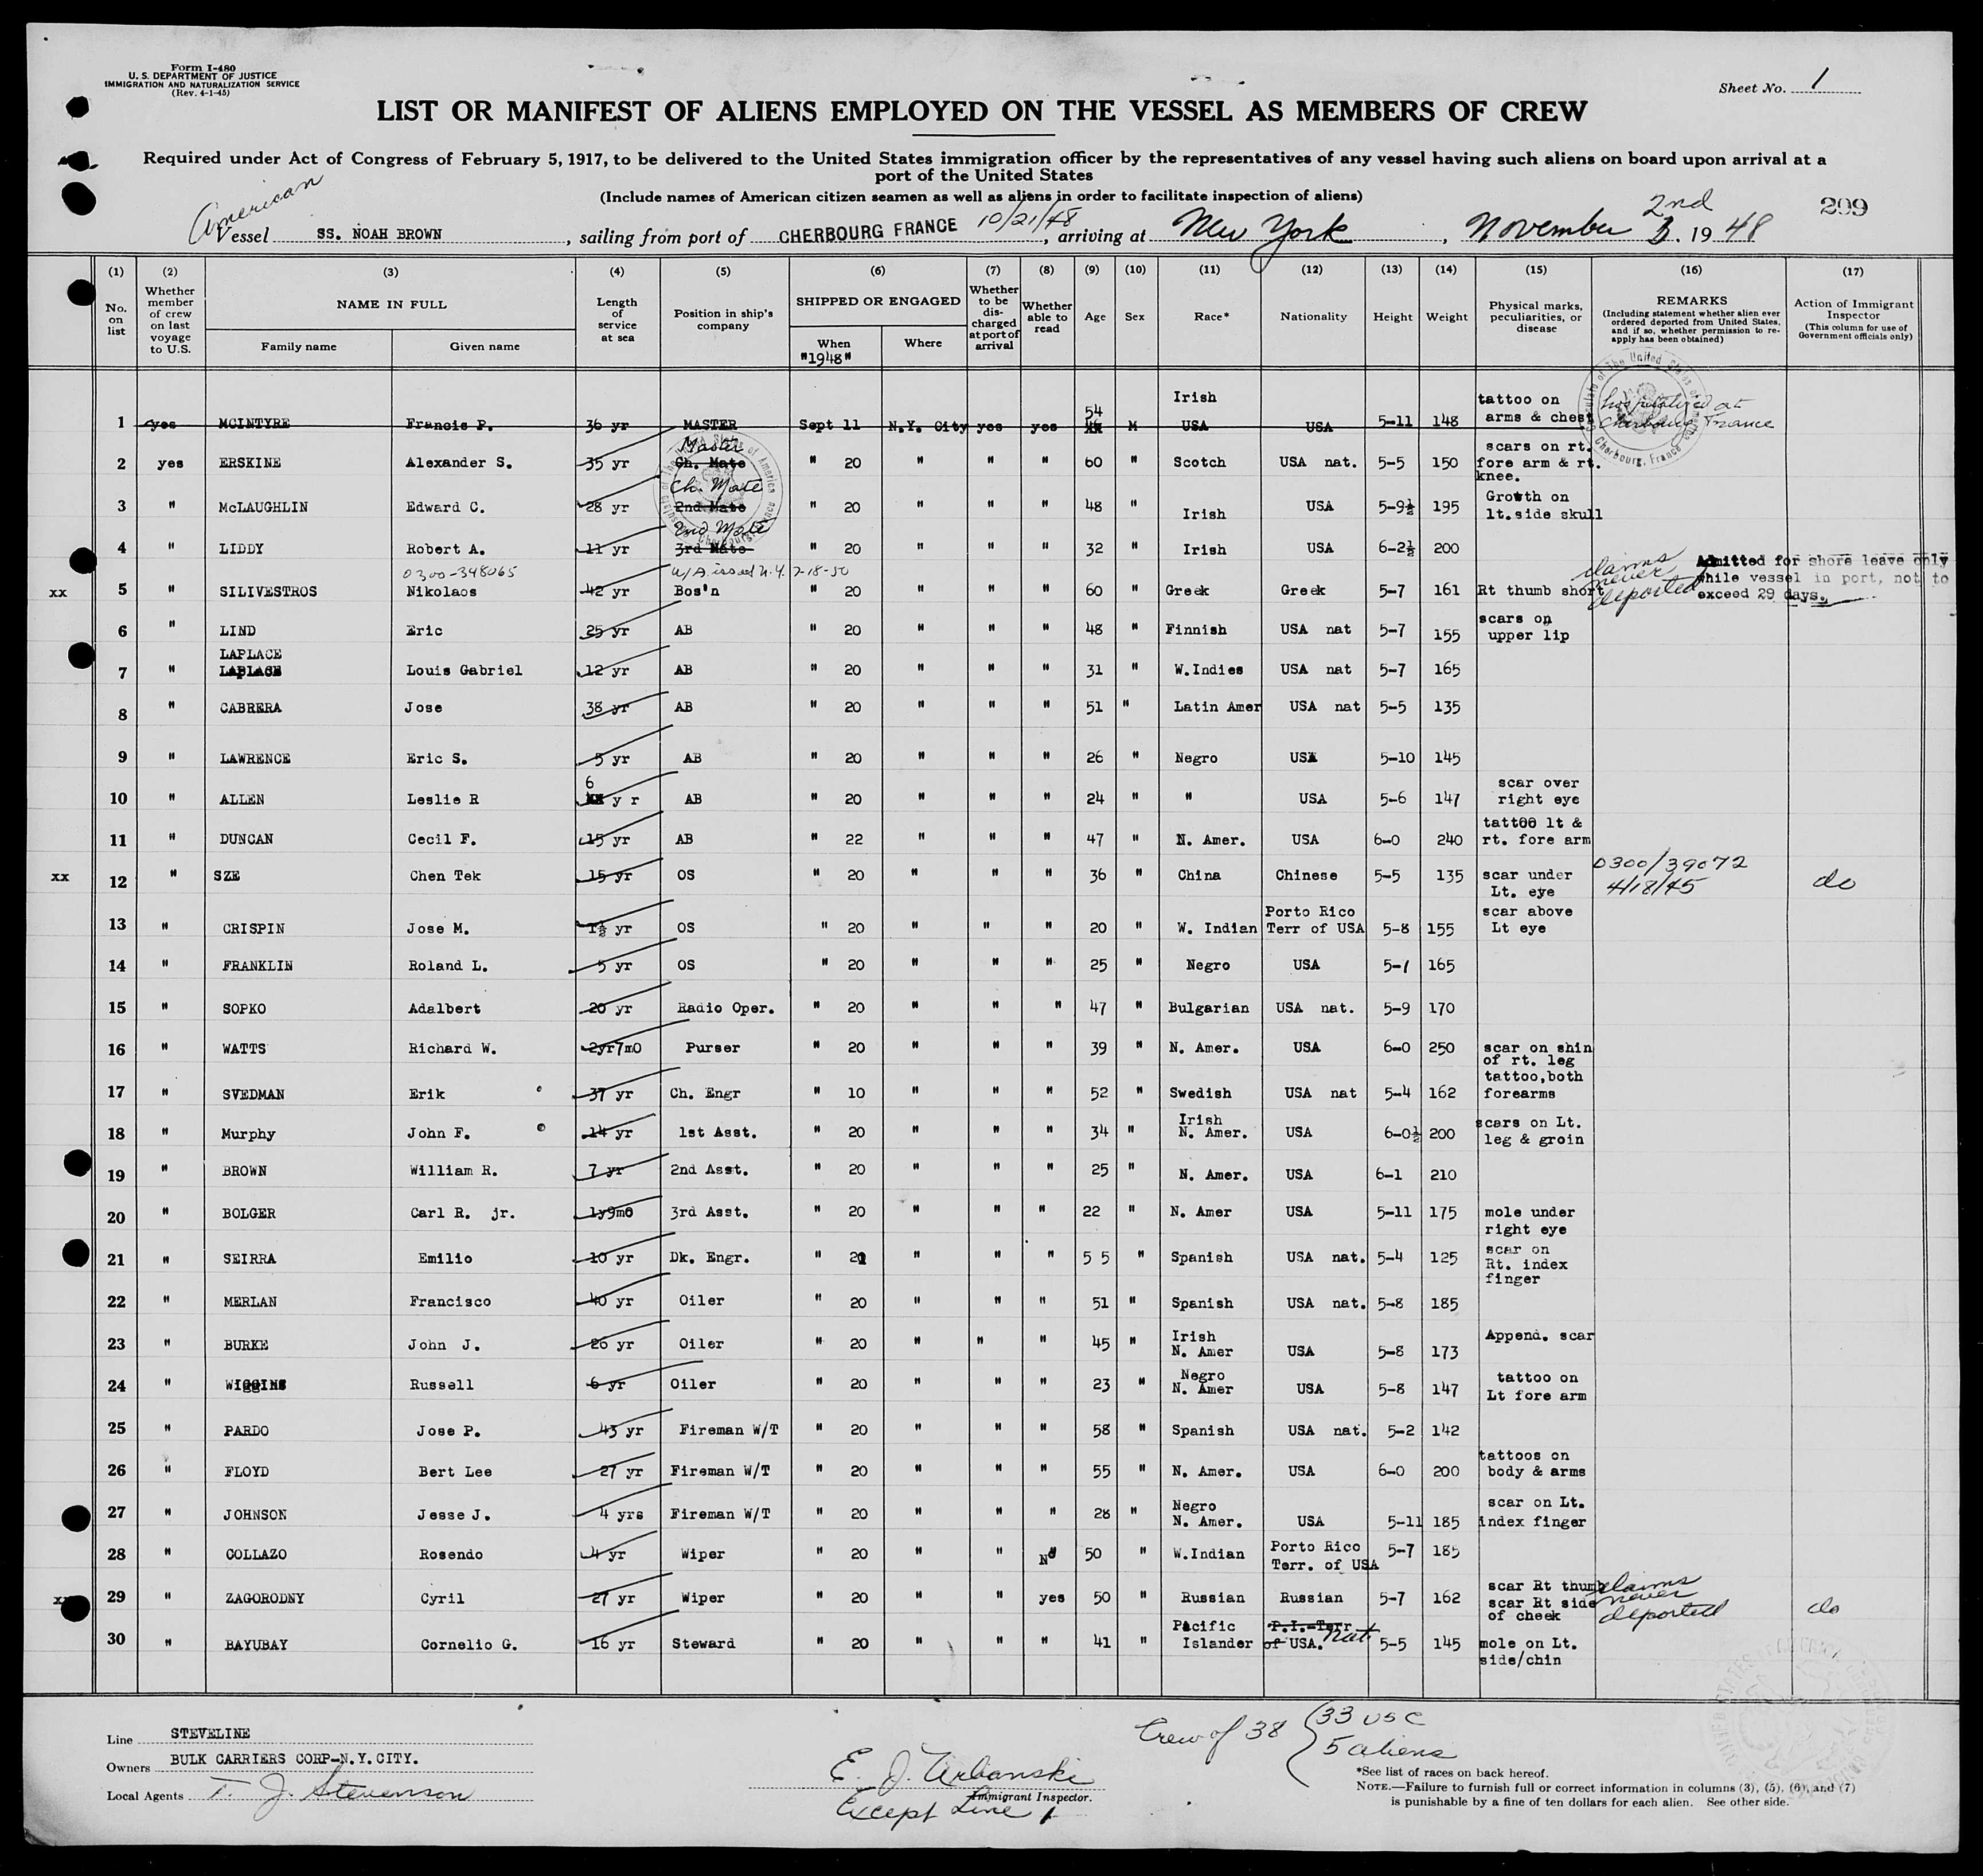 Form I-480
U. S. DEPARTMENT OF JUSTICE
IMMIGRATION AND NATURALIZATION SERVICE
(Rev. 4-1-45)
Sheet No. 1
LIST OR MANIFEST OF ALIENS EMPLOYED ON THE VESSEL AS MEMBERS OF CREW
Required under Act of Congress of February 5, 1917, to be delivered to the United States immigration officer by the representatives of any vessel having such aliens on board upon arrival at a
port of the United States
(Include names of American citizen seamen as well as aliens in order to facilitate inspection of aliens)
209
American
Vessel SS. NOAH BROWN, sailing from port of CHERBOURG FRANCE 10/21/48, arriving at New York, November 2nd 3. 19 48
(1) (2) (3) (4) (5) (6) (7) (8) (9) (10) (11) (12) (13) (14) (15) (16) (17)
No. on list
Whether member of crew on last voyage to U.S.
NAME IN FULL
Family name Given name
Length of service at sea
Position in ship's company
SHIPPED OR ENGAGED
When "1948" Where
Whether to be discharged at port of arrival
Whether able to read
Age
Sex
Race*
Nationality
Height
Weight
Physical marks, peculiarities, or disease
REMARKS
(Including statement whether alien ever ordered deported from United States, and if so, whether permission to re-apply has been obtained)
Action of Immigrant Inspector
(This column for use of Government officials only)
1 yes MCINTYRE Francis P. 36 yr MASTER Sept 11 N.Y. City yes yes 54 M Irish USA USA 5-11 148 tattoo on arms & chest hospitalized at Cherbourg France
2 yes ERSKINE Alexander S. 35 yr Ch. Mate Master " 20 " " " 60 " Scotch USA nat. 5-5 150 scars on rt. fore arm & rt. knee.
3 " McLAUGHLIN Edward C. 28 yr 2nd Mate Ch. Mate " 20 " " " 48 " Irish USA 5-9½ 195 Growth on lt.side skull
4 " LIDDY Robert A. 11 yr 3rd Mate 2nd Mate " 20 " " " 32 " Irish USA 6-2½ 200
0300-348065 W/A issued N.Y. 7-18-50
xx 5 " SILIVESTROS Nikolaos 42 yr Bos'n " 20 " " " 60 " Greek Greek 5-7 161 Rt thumb short claims never deported Admitted for shore leave only while vessel in port, not to exceed 29 days.
6 " LIND Eric 25 yr AB " 20 " " " 48 " Finnish USA nat 5-7 155 scars on upper lip
7 " LAPLACE LAPLACE Louis Gabriel 12 yr AB " 20 " " " 31 " W.Indies USA nat 5-7 165
8 " CABRERA Jose 38 yr AB " 20 " " " 51 " Latin Amer USA nat 5-5 135
9 " LAWRENCE Eric S. 5 yr AB " 20 " " " 26 " Negro USA 5-10 145
10 " ALLEN Leslie R 6 yr AB " 20 " " " 24 " " USA 5-6 147 scar over right eye
11 " DUNCAN Cecil F. 15 yr AB " 22 " " " 47 " N. Amer. USA 6-0 240 tattoo lt & rt. fore arm
xx 12 " SZE Chen Tek 15 yr OS " 20 " " " 36 " China Chinese 5-5 135 scar under Lt. eye 0300/39072 4/18/45 do
13 " CRISPIN Jose M. 1½ yr OS " 20 " " " 20 " W. Indian Porto Rico Terr of USA 5-8 155 scar above Lt eye
14 " FRANKLIN Roland L. 5 yr OS " 20 " " " 25 " Negro USA 5-7 165
15 " SOPKO Adalbert 20 yr Radio Oper. " 20 " " " 47 " Bulgarian USA nat. 5-9 170
16 " WATTS Richard W. 2yr7mo Purser " 20 " " " 39 " N. Amer. USA 6-0 250 scar on shin of rt. leg
17 " SVEDMAN Erik 37 yr Ch. Engr " 10 " " " 52 " Swedish USA nat 5-4 162 tattoo,both forearms
18 " Murphy John F. 14 yr 1st Asst. " 20 " " " 34 " Irish N. Amer. USA 6-0½ 200 scars on Lt. leg & groin
19 " BROWN William R. 7 yr 2nd Asst. " 20 " " " 25 " N. Amer. USA 6-1 210
20 " BOLGER Carl R. jr. 1y9mo 3rd Asst. " 20 " " " 22 " N. Amer USA 5-11 175 mole under right eye
21 " SEIRRA Emilio 10 yr Dk. Engr. " 21 " " " 55 " Spanish USA nat. 5-4 125 scar on Rt. index finger
22 " MERLAN Francisco 40 yr Oiler " 20 " " " 51 " Spanish USA nat. 5-8 185
23 " BURKE John J. 26 yr Oiler " 20 " " " 45 " Irish N. Amer USA 5-8 173 Append. scar
24 " WIGGINS Russell 6 yr Oiler " 20 " " " 23 " Negro N. Amer USA 5-8 147 tattoo on Lt fore arm
25 " PARDO Jose P. 43 yr Fireman W/T " 20 " " " 58 " Spanish USA nat. 5-2 142
26 " FLOYD Bert Lee 27 yr Fireman W/T " 20 " " " 55 " N. Amer. USA 6-0 200 tattoos on body & arms
27 " JOHNSON Jesse J. 4 yrs Fireman W/T " 20 " " " 28 " Negro N. Amer. USA 5-11 185 scar on Lt. index finger
28 " COLLAZO Rosendo 4 yr Wiper " 20 " " No 50 " W.Indian Porto Rico Terr. of USA 5-7 185
xx 29 " ZAGORODNY Cyril 27 yr Wiper " 20 " " yes 50 " Russian Russian 5-7 162 scar Rt thumb scar Rt side of cheek claims never deported do
30 " BAYUBAY Cornelio G. 16 yr Steward " 20 " " " 41 " Pacific Islander P.I.-Terr of USA. nat 5-5 145 mole on Lt. side/chin
Line STEVELINE
Owners BULK CARRIERS CORP-N.Y.CITY.
Local Agents T. J. Stevenson
E. J. Urbanski
Immigrant Inspector.
Except Line 1
Crew of 38 { 33 USC
5 aliens
*See list of races on back hereof.
NOTE.—Failure to furnish full or correct information in columns (3), (5), (6), and (7)
is punishable by a fine of ten dollars for each alien. See other side.